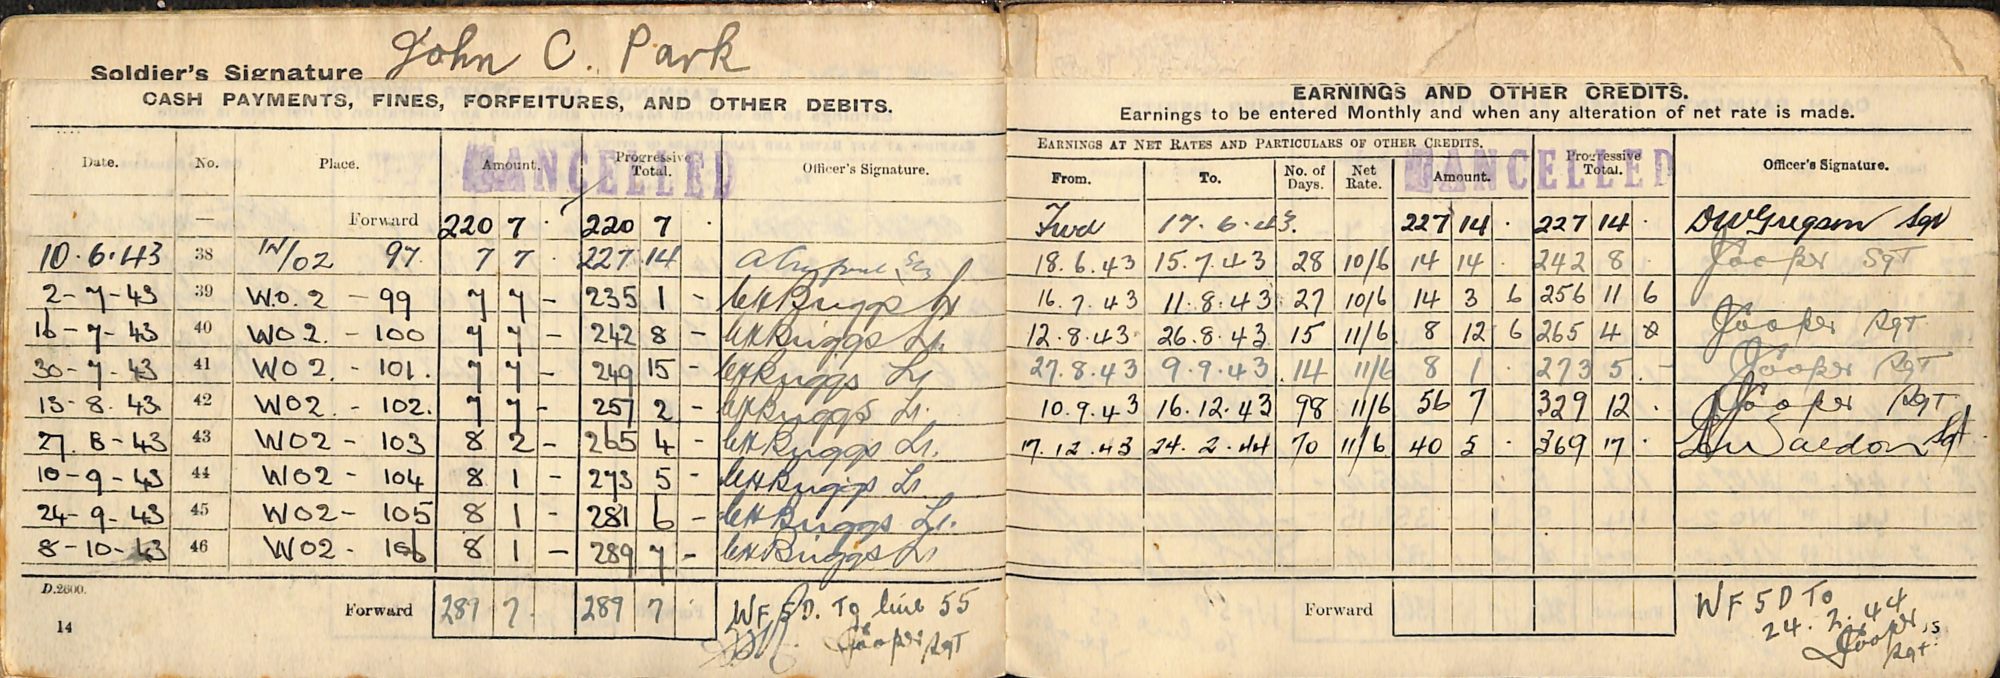 Soldier's Signature John C. Park
CASH PAYMENTS, FINES, FORFEITURES, AND OTHER DEBITS.
Date. No. Place. Amount. Progressive Total. Officer's Signature.
CANCELLED
— Forward 220 7 · 220 7 ·
10·6·43 38 IN/02 97 7 7 · 227·14
2-7-43 39 W.O.2 - 99 7 7 - 235 1 - CH Briggs Lt
16-7-43 40 WO2. - 100 7 7 - 242 8 - CH Briggs Lt.
30-7-43 41 WO2. - 101. 7 7 - 249 15 - CH Briggs Lt
13-8.43. 42 WO2. - 102. 7 7 - 257 2 - CH Briggs Lt.
27.8-43 43 WO2 - 103 8 2 - 265 4 - CH Briggs Lt.
10-9-43 44 WO2 - 104 8 1 - 273 5 - CH Briggs Lt
24-9-43 45 WO2 - 105 8 1 - 281 6 - CH Briggs Lt.
8-10-43 46 WO2 - 106 8 1 - 289 7 - CH Briggs Lt
D.2600.
Forward 289 7 - 289 7 WF 5D. To line 55
JCooper Sgt
14
EARNINGS AND OTHER CREDITS.
Earnings to be entered Monthly and when any alteration of net rate is made.
EARNINGS AT NET RATES AND PARTICULARS OF OTHER CREDITS.
From. To. No. of Days. Net Rate. Amount. Progressive Total. Officer's Signature.
CANCELLED
Fwd 17.6.43. 227 14 · 227 14 · DW Gregson Sgt
18.6.43 15.7.43 28 10/6 14 14 · 242 8 · JCooper Sgt
16.7.43 11.8.43 27 10/6 14 3 6 256 11 6
12.8.43. 26.8.43 15 11/6 8 12 6 265 4 JCooper Sgt
27.8.43 9.9.43 14 11/6 8 1 · 273 5 . - JCooper Sgt
10.9.43 16.12.43 98 11/6 56 7 329 12 · JCooper Sgt
17.12.43 24.2.44 70 11/6 40 5 · 369 17 · Waldon Sgt
Forward WF 5D To
24.2.44
JCooper
Sgt.